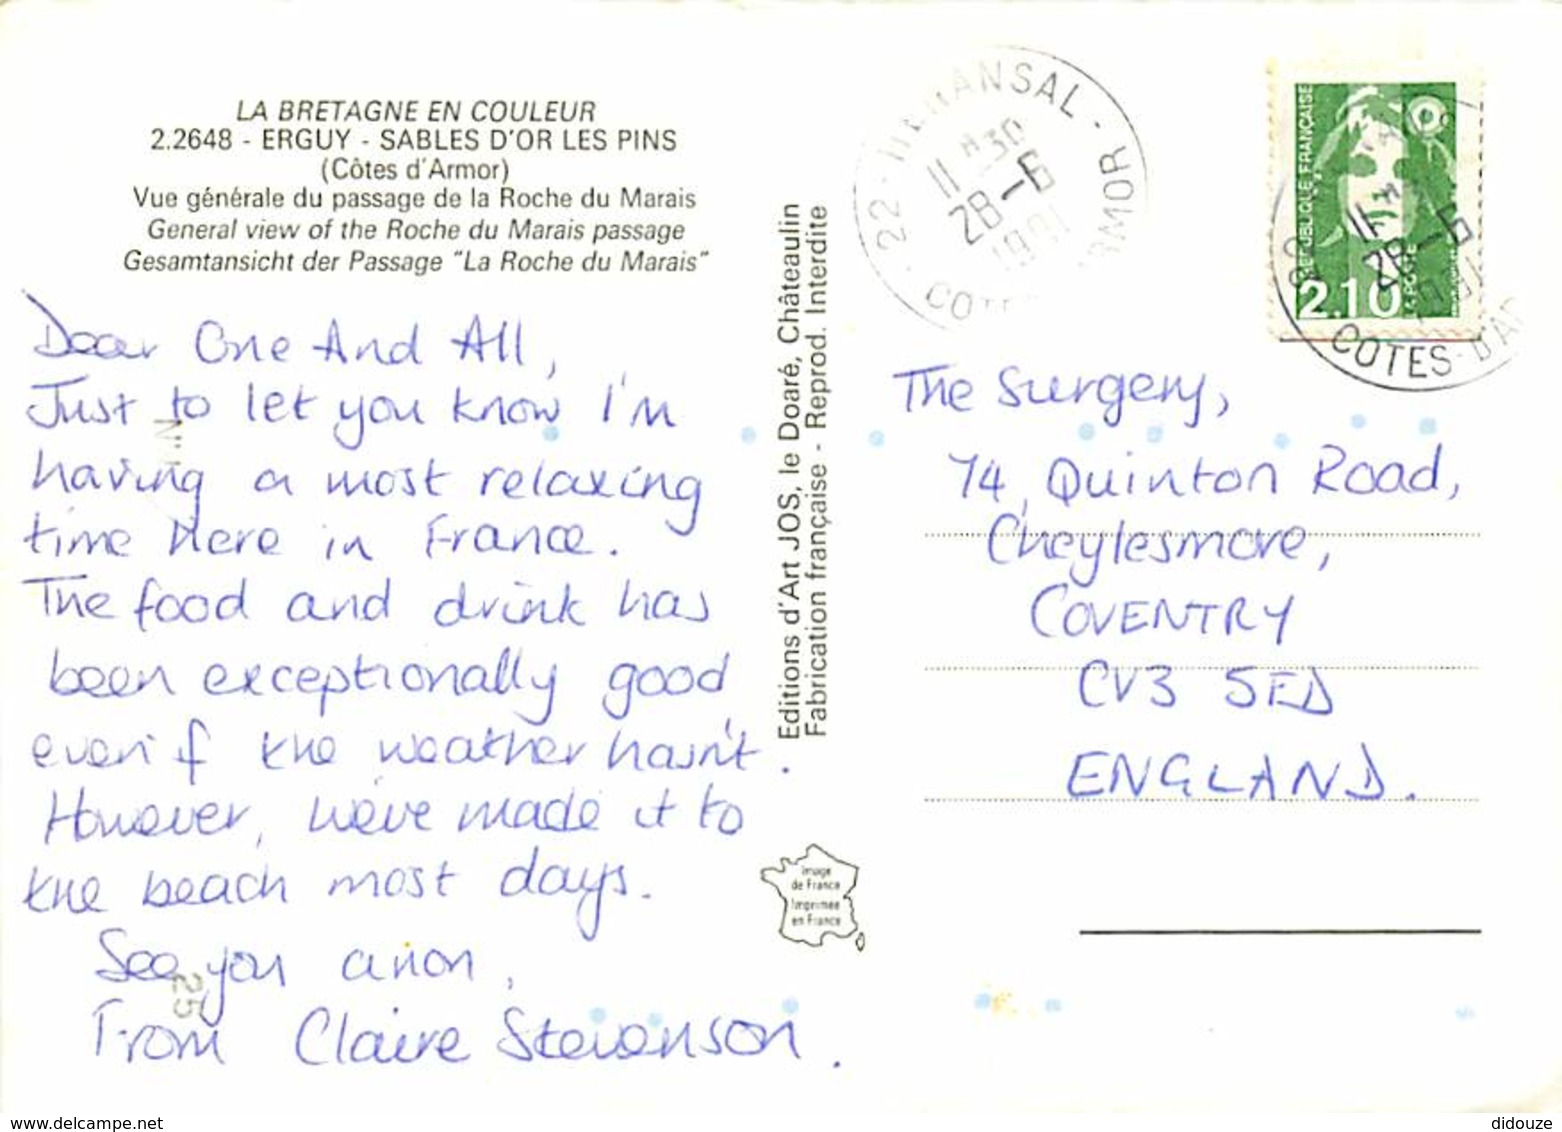 LA BRETAGNE EN COULEUR
2.2648 - ERGUY - SABLES D'OR LES PINS
(Côtes d'Armor)
Vue générale du passage de la Roche du Marais
General view of the Roche du Marais passage
Gesamtansicht der Passage "La Roche du Marais"
Dear One And All,
Just to let you know I'm
having a most relaxing
time here in France.
The food and drink has
been exceptionally good
even if the weather hasn't.
However, we've made it to
the beach most days.
See you anon,
From Claire Stevenson.
25
Editions d'Art JOS, le Doaré, Châteaulin
Fabrication française - Reprod. Interdite
Image
de France
Imprimée
en France
22
11 H 30
28-6
1991
RÉPUBLIQUE FRANÇAISE
2.10
LA POSTE
11 H
28-6
1991
COTES-D'AR
The Surgery,
74, Quinton Road,
Cheylesmore,
COVENTRY
CV3 5ED
ENGLAND.
didouze